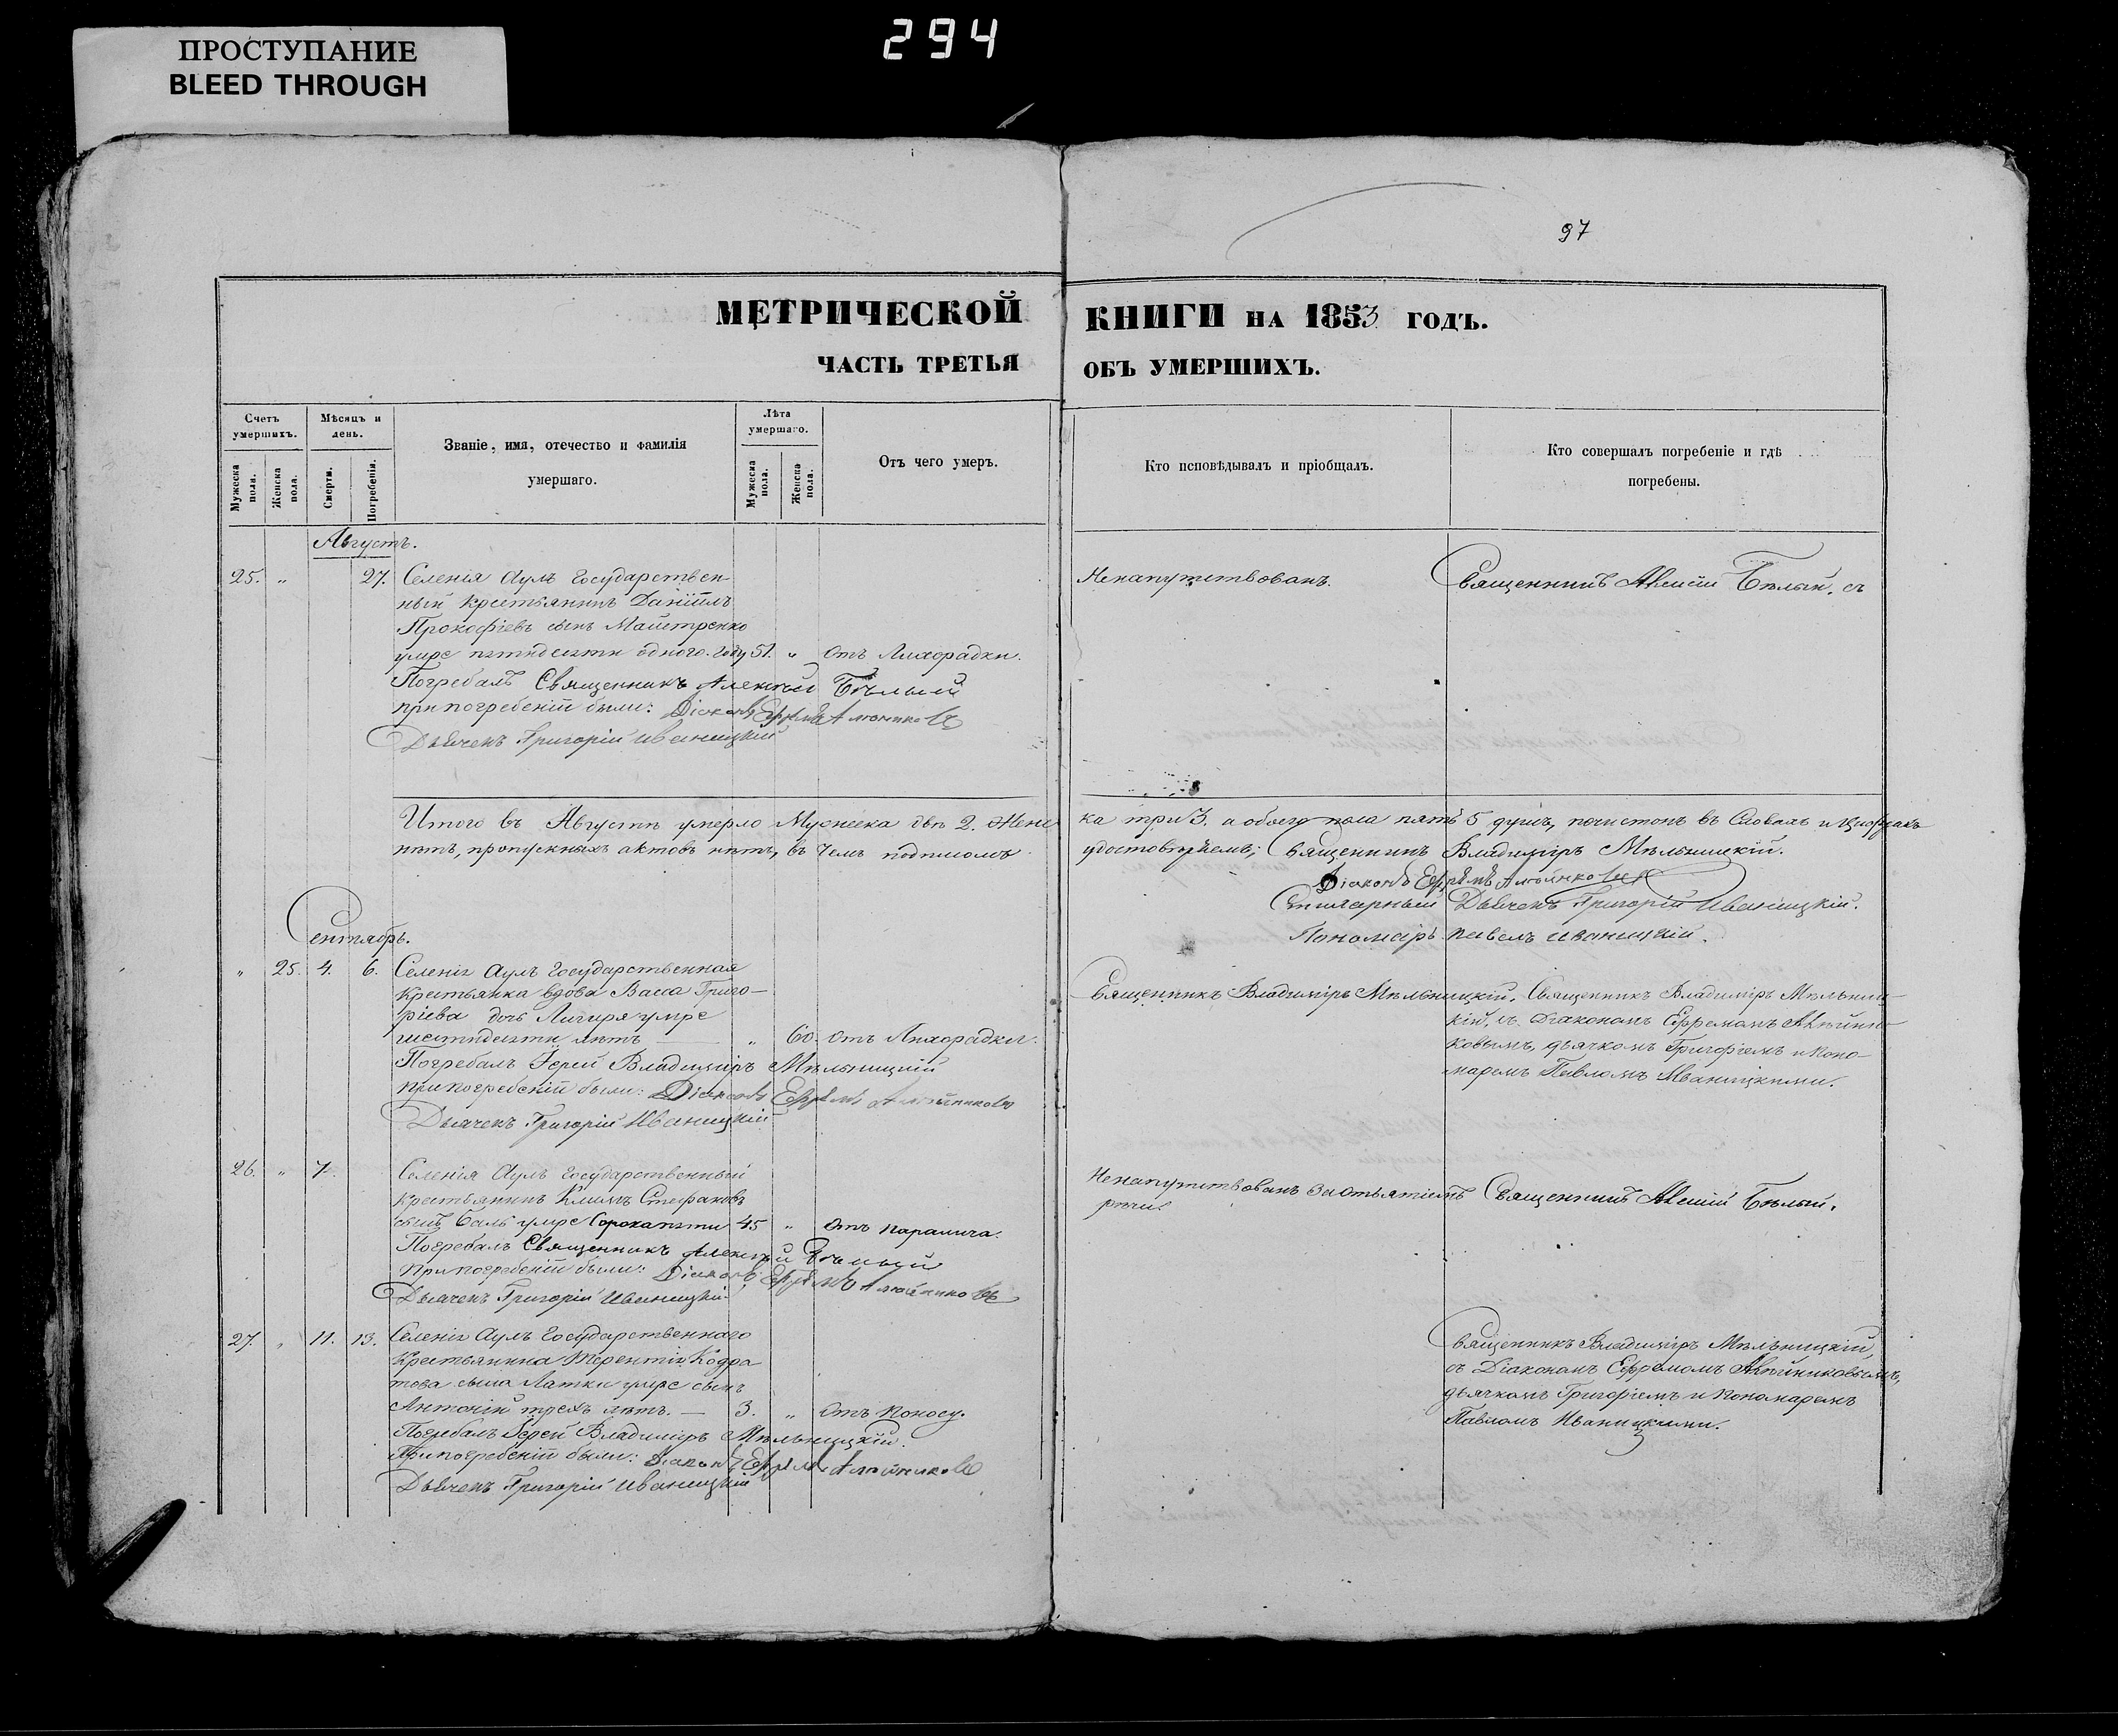 ПРОСТУПАНИЕ
BLEED THROUGH
294
97
МЕТРИЧЕСКОЙ КНИГИ НА 1853 ГОДЪ.
ЧАСТЬ ТРЕТЬЯ ОБЪ УМЕРШИХЪ.
Счетъ умершихъ.
Мѣсяцъ и день.
Званіе, имя, отечество и фамилія умершаго.
Лѣта умершаго.
Отъ чего умеръ.
Кто исповѣдывалъ и пріобщалъ.
Кто совершалъ погребеніе и гдѣ погребены.
Мужеска пола.
Женска пола.
Смерти.
Погребенія.
Мужеска пола.
Женска пола.
Августъ.
25. „ 27. Селенія Аулъ Государствен- Ненапутствованъ. Священникъ Алексій Бѣлый, съ
ный крестьянинъ Даніилъ
Прокофіевъ сынъ Майстренко
умре пятидесяти одного году 51. „ отъ Лихорадки.
Погребалъ Священникъ Алексѣй Бѣлый
при погребеніи были: Діаконъ Ефремъ
Дьячекъ Григорій Иваницкій
Итого въ Августѣ умерло Мужеска двѣ 2. Женс ка три 3. а обоего пола пять 5 душъ, въ Словахъ и Цифрахъ
нѣтъ, пропускныхъ актовъ нѣтъ, въ чемъ подписомъ удостовѣряемъ; Священникъ Владиміръ Мѣльницкій.
Діаконъ Ефремъ
Дьячекъ Григорій Иваницкій.
Пономарь Павелъ Иваницкій.
Сентябрь.
„ 25. 4. 6. Селенія Аулъ Государственная
крестьянка вдова Васса Григо- Священникъ Владиміръ Мѣльницкій. Священникъ Владиміръ Мѣльниц-
ріева дочь умре кій, съ Діакономъ Ефремомъ Алейни-
шестидесяти лѣтъ — „ 60. отъ Лихорадки. ковымъ, дьячкомъ Григоріемъ и Поно-
Погребалъ Іерей Владиміръ Мѣльницкій маремъ Павломъ Иваницкими.
при погребеніи были: Діаконъ Ефремъ
Дьячекъ Григорій Иваницкій
26. „ 7. Селенія Аулъ Государственный Ненапутствованъ за отъятіемъ Священникъ Алексій Бѣлый.
крестьянинъ Климъ Стефановъ рѣчи
сынъ умре Сорокапяти 45 „ Отъ паралича.
Погребалъ Священникъ Алексѣй Бѣлый
При погребеніи были: Діаконъ Ефремъ
Дьячекъ Григорій Иваницкій.
27. „ 11. 13. Селенія Аулъ Государственнаго Священникъ Владиміръ Мѣльницкій,
крестьянина Терентія Кодра- съ Діакономъ Ефремомъ Алейниковымъ,
това сына Латки умре сынъ дьячкомъ Григоріемъ и Пономаремъ
Антоній трехъ лѣтъ. — 3. „ Отъ Поносу. Павломъ Иваницкими.
Погребалъ Іерей Владиміръ Мѣльницкій.
При погребеніи были: Діаконъ Ефремъ
Дьячекъ Григорій Иваницкій